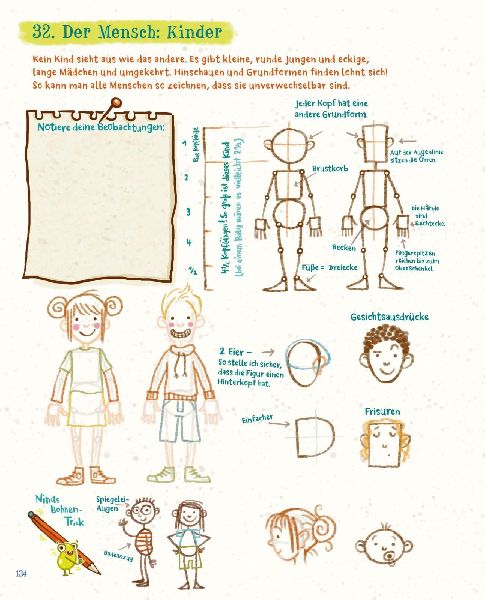 32. Der Mensch: Kinder
Kein Kind sieht aus wie das andere. Es gibt kleine, runde Jungen und eckige,
lange Mädchen und umgekehrt. Hinschauen und Grundformen finden lohnt sich!
So kann man alle Menschen so zeichnen, dass sie unverwechselbar sind.
Notiere deine Beobachtungen:
1
2
3
4
1/2
4½ Kopflängen: So groß ist dieses Kind
(bei einem Baby wären es vielleicht 2½)
Jeder Kopf hat eine
andere Grundform
Auf der Augenlinie
sitzen die Ohren.
Brustkorb
Die Hände
sind
Rechtecke.
Becken
Fingerspitzen
reichen bis zum
Oberschenkel.
Füße = Dreiecke
Gesichtsausdrücke
2 Eier –
So stelle ich sicher,
dass die Figur einen
Hinterkopf hat.
Einfacher
Frisuren
Ninas
Bohnen-
Trick
Spiegelei-
Augen
134